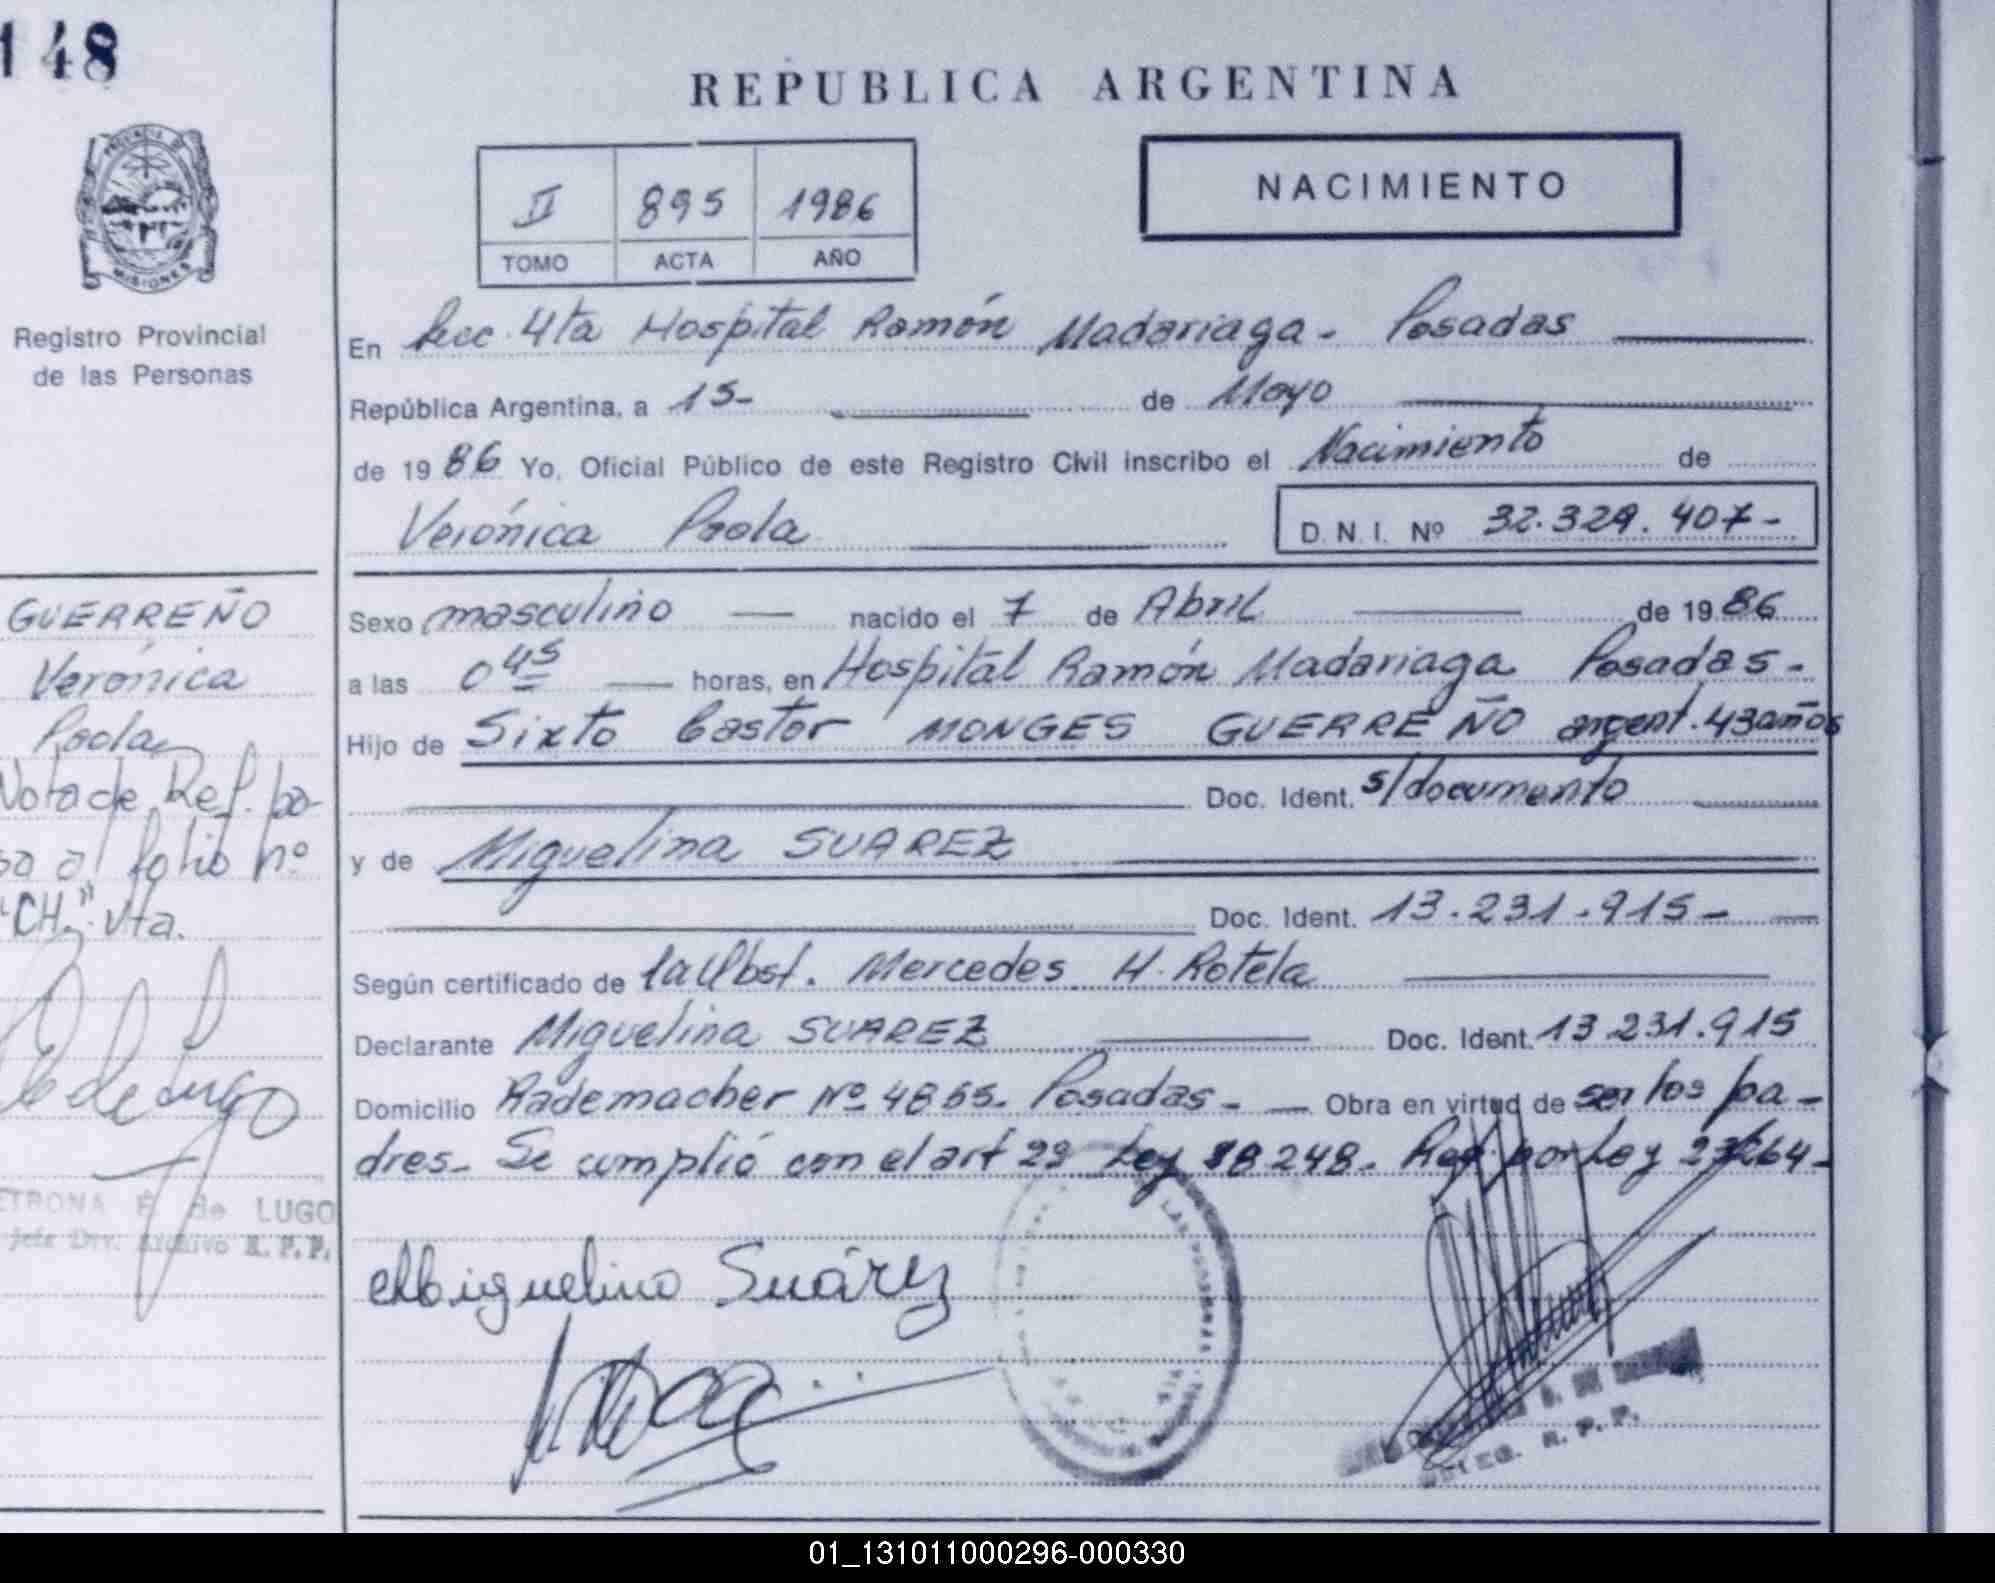 148
REPUBLICA ARGENTINA
II 895 1986
TOMO ACTA AÑO
NACIMIENTO
PROVINCIA DE
MISIONES
Registro Provincial
de las Personas
En Secc. 4ta Hospital Ramón Madariaga - Posadas
República Argentina, a 15- de Mayo
de 1986 Yo, Oficial Público de este Registro Civil inscribo el Nacimiento de
Verónica Paola D. N. I. Nº 32.329.407-
GUERREÑO
Verónica
Paola
Nota de Ref. pa-
sa al folio nº
"CH" vta.
ETRONA E de LUGO
Jefe Div. Archivo R. P. P.
Sexo masculino nacido el 7 de Abril de 1986
a las 0 45 horas, en Hospital Ramón Madariaga Posadas-
Hijo de Sixto Castor MONGES GUERREÑO argent. 43 años
Doc. Ident. s/documento
y de Miguelina SUAREZ
Doc. Ident. 13.231.915-
Según certificado de la Obst. Mercedes H. Rotela
Declarante Miguelina SUAREZ Doc. Ident. 13 231.915
Domicilio Rademacher Nº 4855- Posadas- Obra en virtud de ser los pa-
dres- Se cumplió con el art 29 Ley 18248- Reg. por Ley 23264-
Miguelina Suárez
R. P. P.
01_131011000296-000330